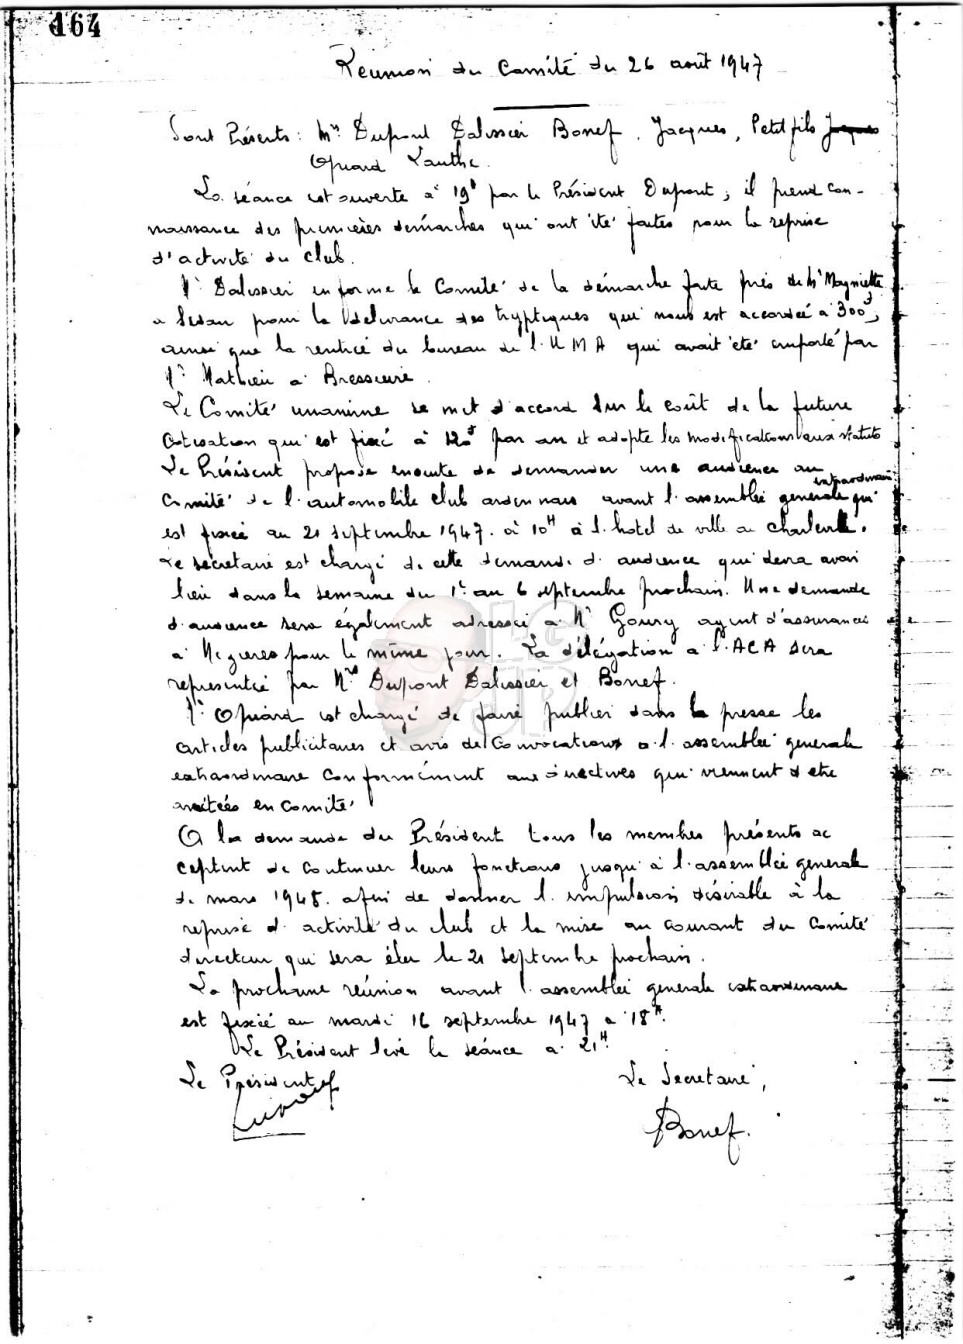 164
Réunion du Comité du 26 août 1947
Sont Présents: Mrs Dupont Dalissier Bonef, Jacques, Petitfils
Lauthe.
La séance est ouverte à 19h par le Président Dupont; il prend con-
naissance des premières démarches qui ont été faites pour la reprise
d'activité du club.
Mr Dalissier informe le Comité de la démarche faite près de Mr
a Sedan pour la délivrance des tryptiques qui nous est accordée à 300f,
ainsi que la rentrée du bureau de l'UMA qui avait été emporté par
Mr Mathieu à Bressuire.
Le Comité unanime se met d'accord sur le coût de la future
cotisation qui est fixé à 120f par an et adopte les modifications aux statuts
Le Président propose ensuite de demander une audience au
Comité de l'automobile club ardennais avant l'assemblée generale extraordinaire qui
est fixée au 21 septembre 1947. à 10H à l'hotel de ville de Charleville.
Le secretaire est chargé de cette demande d'audience qui devra avoir
lieu dans la semaine du 1er au 6 septembre prochain. Une demande
d'audience sera également adressée à Mr Goury agent d'assurances
à Mezieres pour le même jour. La délégation a l'ACA sera
representée par Mrs Dupont Dalissier et Bonef.
LG
JP
Mr est chargé de faire publier dans la presse les
articles publicitaires et avis de convocations a l'assemblée generale
extraordinaire conformément aux directives qui viennent d'etre
en comité
A la demande du Président tous les membres présents ac
ceptent de continuer leurs fonctions jusqu'à l'assemblée generale
de mars 1948. afin de donner l'impulsion désirable à la
reprise d'activité du club et la mise au courant du Comité
directeur qui sera élu le 21 septembre prochain.
La prochaine réunion avant l'assemblée generale extraordinaire
est fixée au mardi 16 septembre 1947 a 18H.
Le Président lève la séance a 21H
Le Président Le Secretaire,
Bonef.